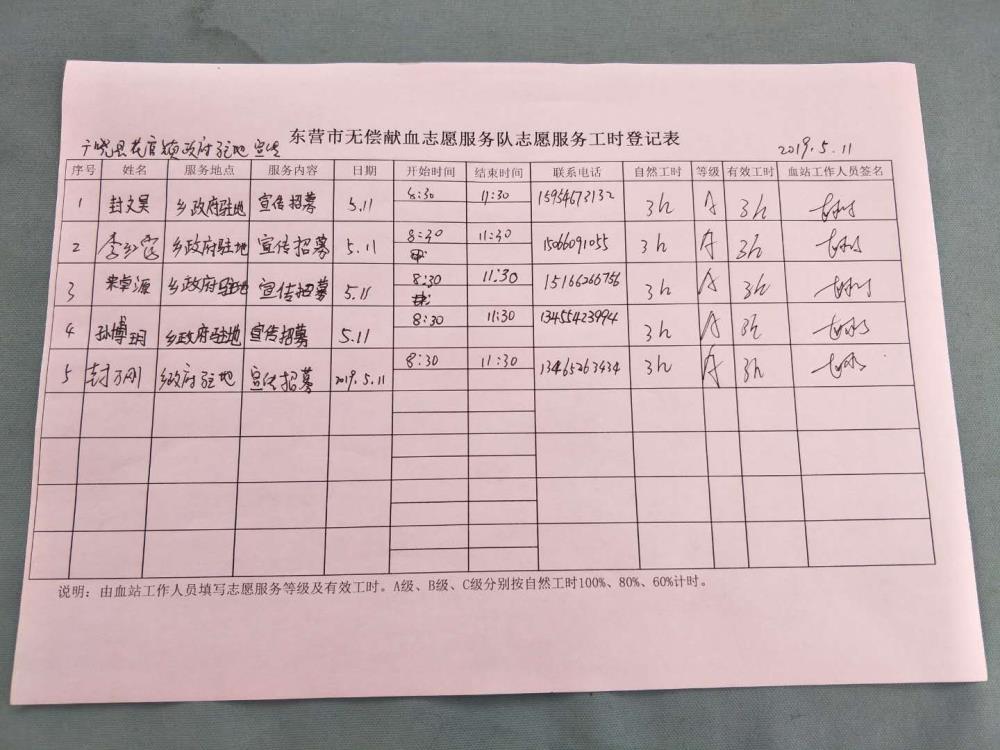 东营市无偿献血志愿服务队志愿服务工时登记表
广饶县花官镇政府驻地宣传 2019.5.11
序号 姓名 服务地点 服务内容 日期 开始时间 结束时间 联系电话 自然工时 等级 有效工时 血站工作人员签名
1 封文昊 乡政府驻地 宣传招募 5.11 8:30 11:30 15954673132 3h A 3h
2 乡政府驻地 宣传招募 5.11 8:30 11:30 15066091055 3h A 3h
3 宋卓源 乡政府驻地 宣传招募 5.11 8:30 11:30 15166266756 3h A 3h
4 孙博玥 乡政府驻地 宣传招募 5.11 8:30 11:30 13455423994 3h A 3h
5 封万刚 乡政府驻地 宣传招募 2019.5.11 8:30 11:30 13465263434 3h A 3h
说明：由血站工作人员填写志愿服务等级及有效工时。A级、B级、C级分别按自然工时100%、80%、60%计时。